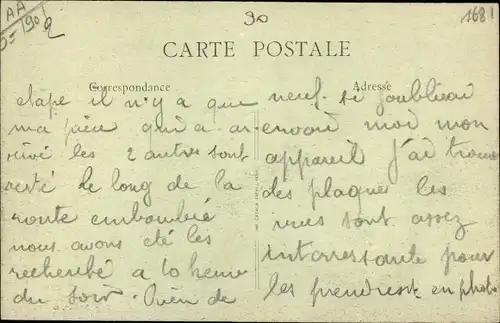 AA
5=1902
30
1681
CARTE POSTALE
Correspondance
Adresse
etape il n'y a que
ma pièce qui a ar-
rivé les 2 autres sont
resté le long de la
route embombré
nous avons été les
recherché a 10 heure
du soir. Rien de
neuf. si j'oublieai
envoié moi mon
appareil j'ai trouvé
des plaques les
vues sont assez
interressante pour
les prendrest en phot